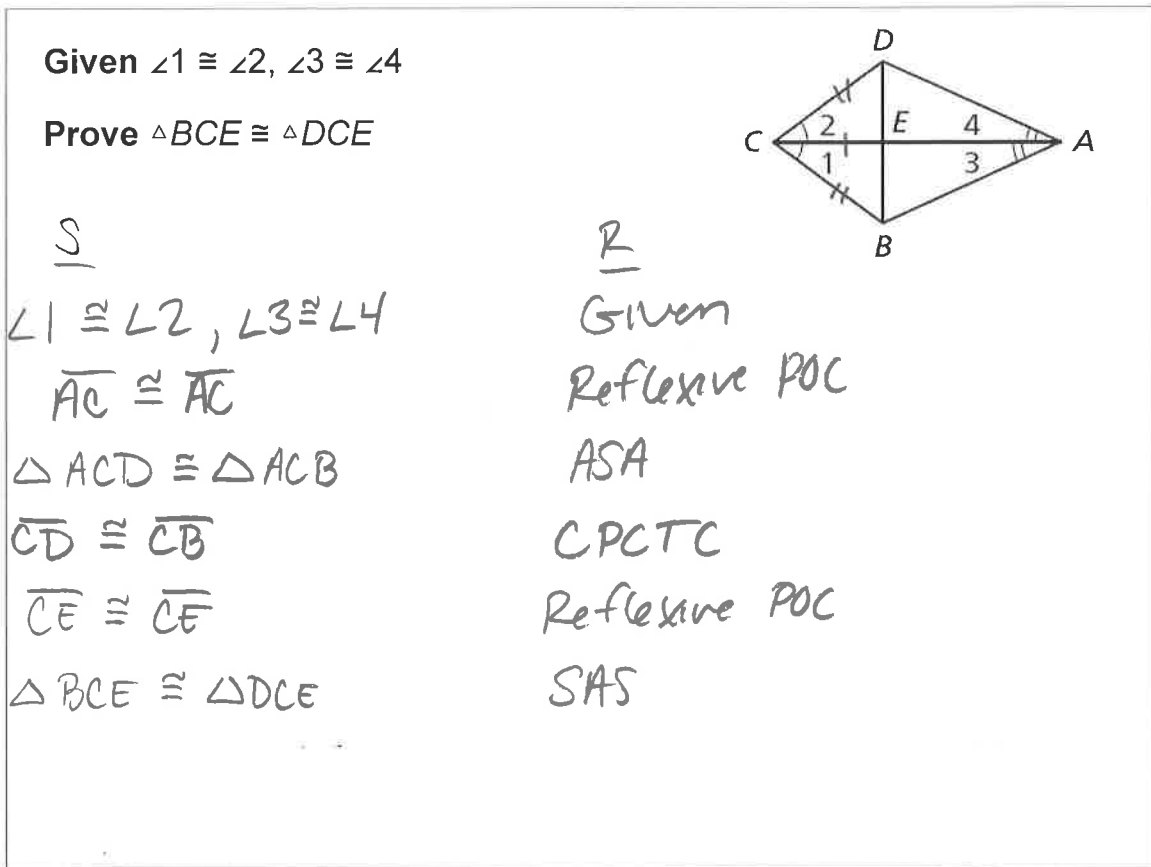 Given ∠1 ≅ ∠2, ∠3 ≅ ∠4
Prove △BCE ≅ △DCE
D
C 2 E 4 A
1 3
B
S R
∠1 ≅ ∠2, ∠3 ≅ ∠4 Given
A̅C̅ ≅ A̅C̅ Reflexive POC
△ACD ≅ △ACB ASA
C̅D̅ ≅ C̅B̅ CPCTC
C̅E̅ ≅ C̅E̅ Reflexive POC
△BCE ≅ △DCE SAS